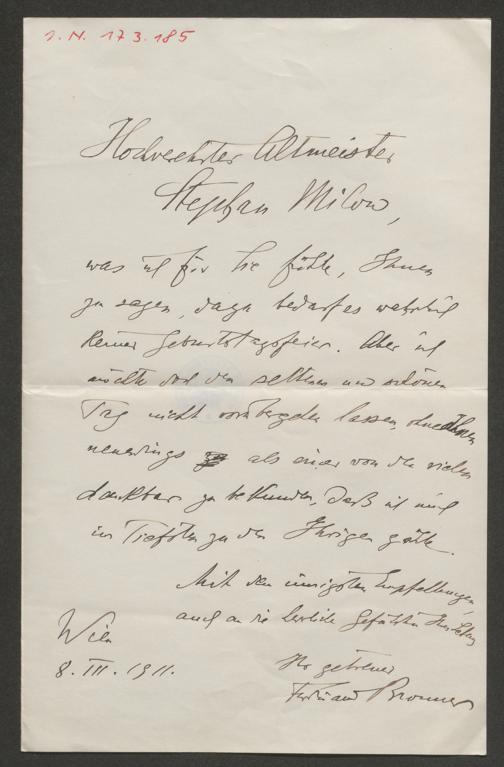 J. N. 173.185
Hochverehrter Altmeister
Stephan Milow,
was ich für Sie fühle, Ihnen
zu sagen, dazu bedarf es wahrlich
keiner Geburtstagsfeier. Aber ich
möchte doch den seltenen und schönen
Tag nicht vorübergehen lassen, ohne Ihnen
neuerdings als einer von den vielen
dankbar zu bekunden, daß ich mich
im Tiefsten zu den Ihrigen zähle.
Mit den innigsten Empfehlungen,
auch an die herrliche Gefährtin Ihres
Wien
8. III. 1911.
Ihr getreuer
Ferdinand Bronner